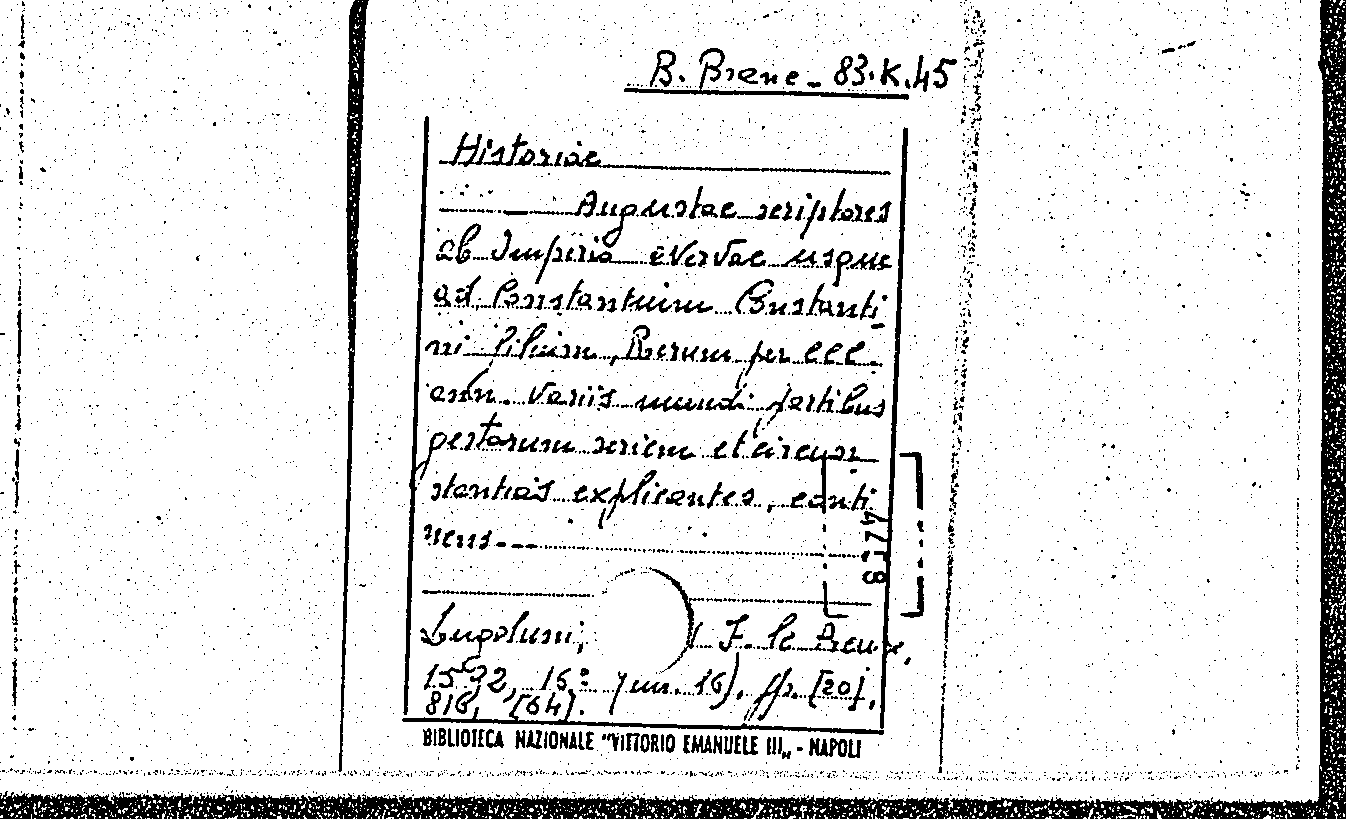 B. Branc - 83.K.45
Historiae
Augustae scriptores
ab Imperio Nervae usque
ad Constantium Constanti-
ni filium, Rerum per CCC
ann. variis mundi partibus
gestarum seriem et circun
stantias explicantes, conti
nens---
Lugduni, J. le Preux,
16° (in 16). pp. [20],
816, [64].
4778
BIBLIOTECA NAZIONALE "VITTORIO EMANUELE III" - NAPOLI